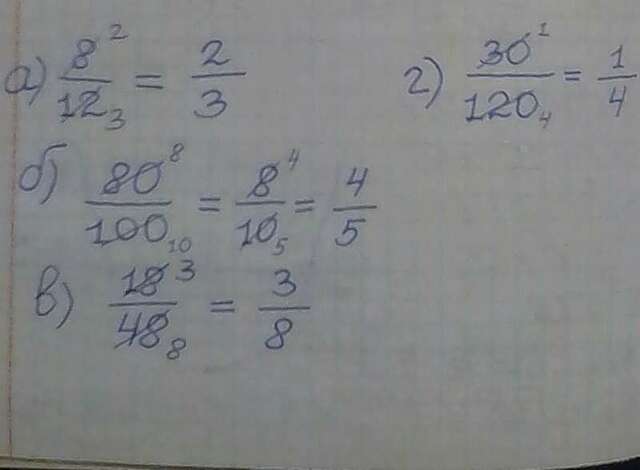 а) 8²/12₃ = 2/3
г) 30¹/120₄ = 1/4
б) 80⁸/100₁₀ = 8⁴/10₅ = 4/5
в) 18³/48₈ = 3/8